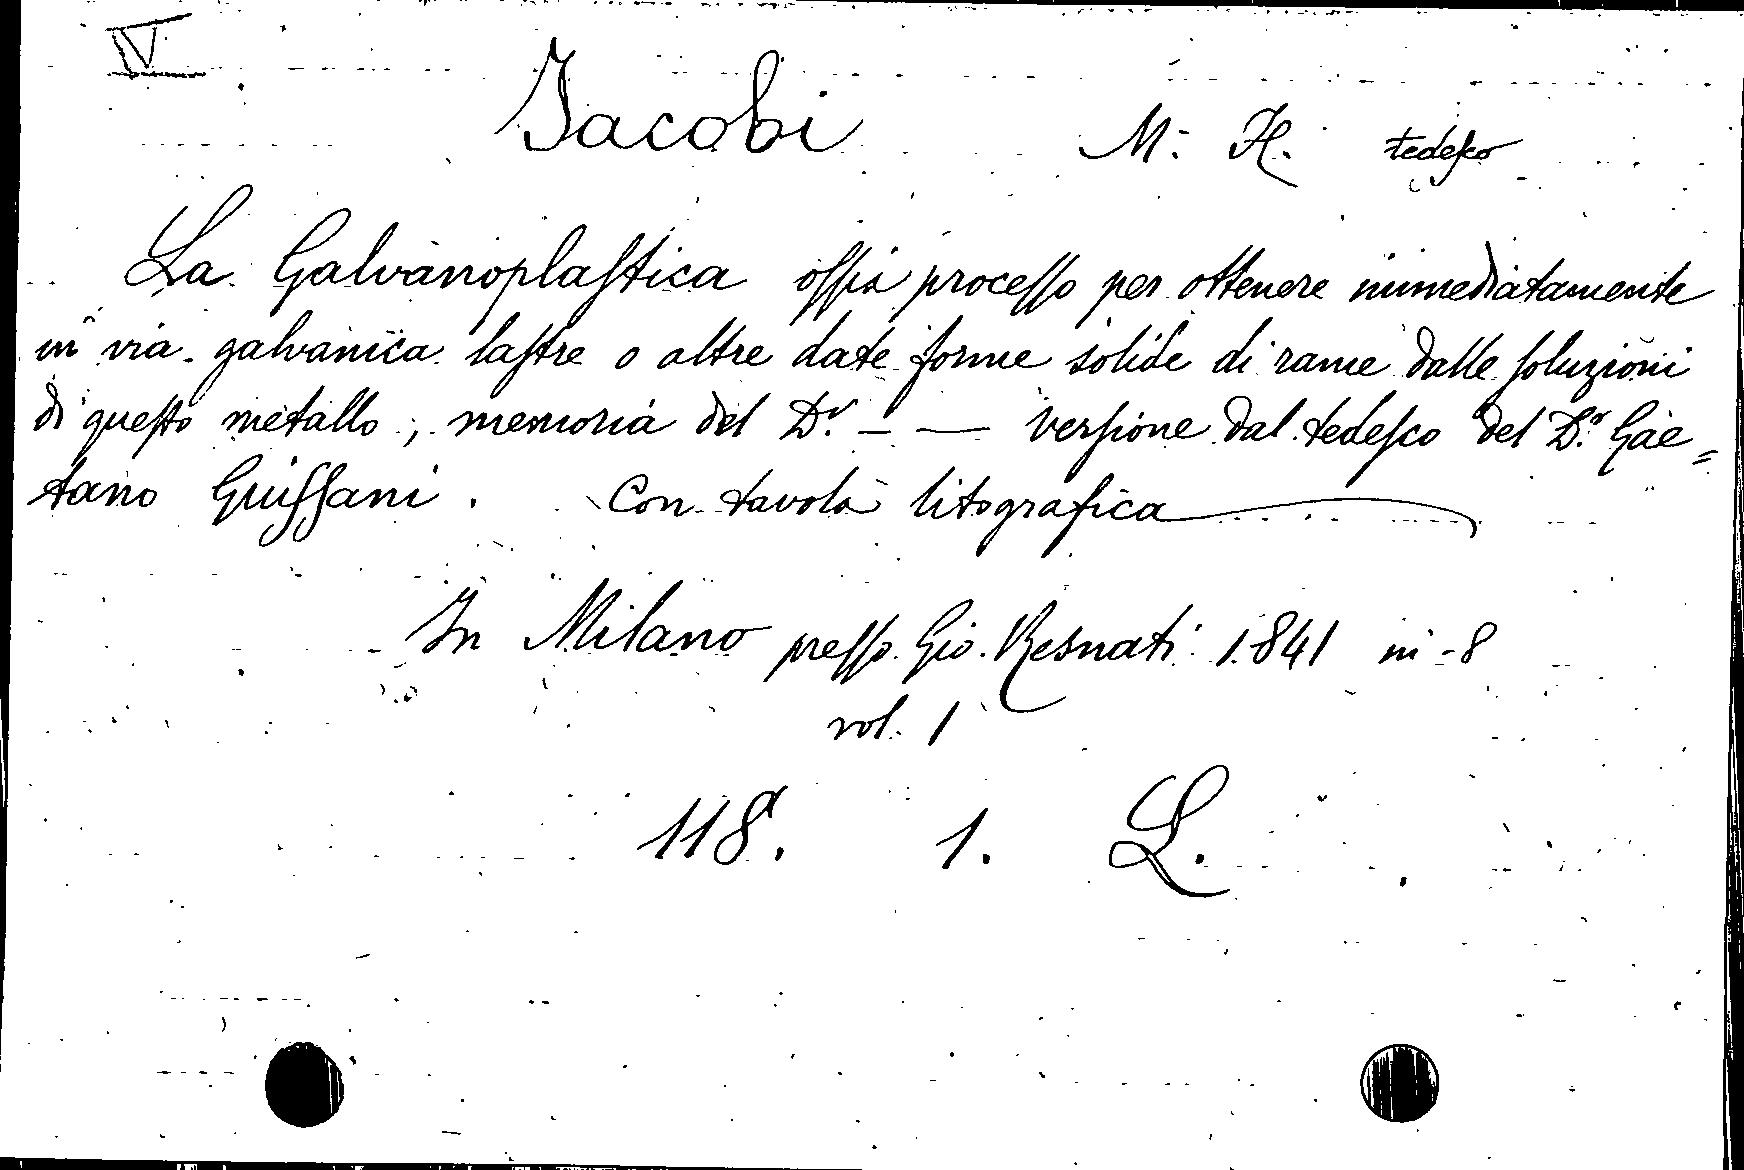 IV
Jacobi M. H. tedesco
La Galvanoplastica ossia processo per ottenere immediatamente
in via galvanica lastre o altre date forme solide di rame dalle soluzioni
di questo metallo, memoria del Dr. — — versione dal tedesco del Dr. Gae=
tano Grissani. Con tavola litografica
In Milano presso Gio. Resnati 1841 in-8
vol. 1
118. 1. L.